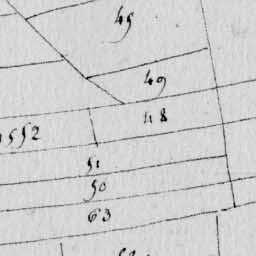 45
49
48
1552
51
50
63